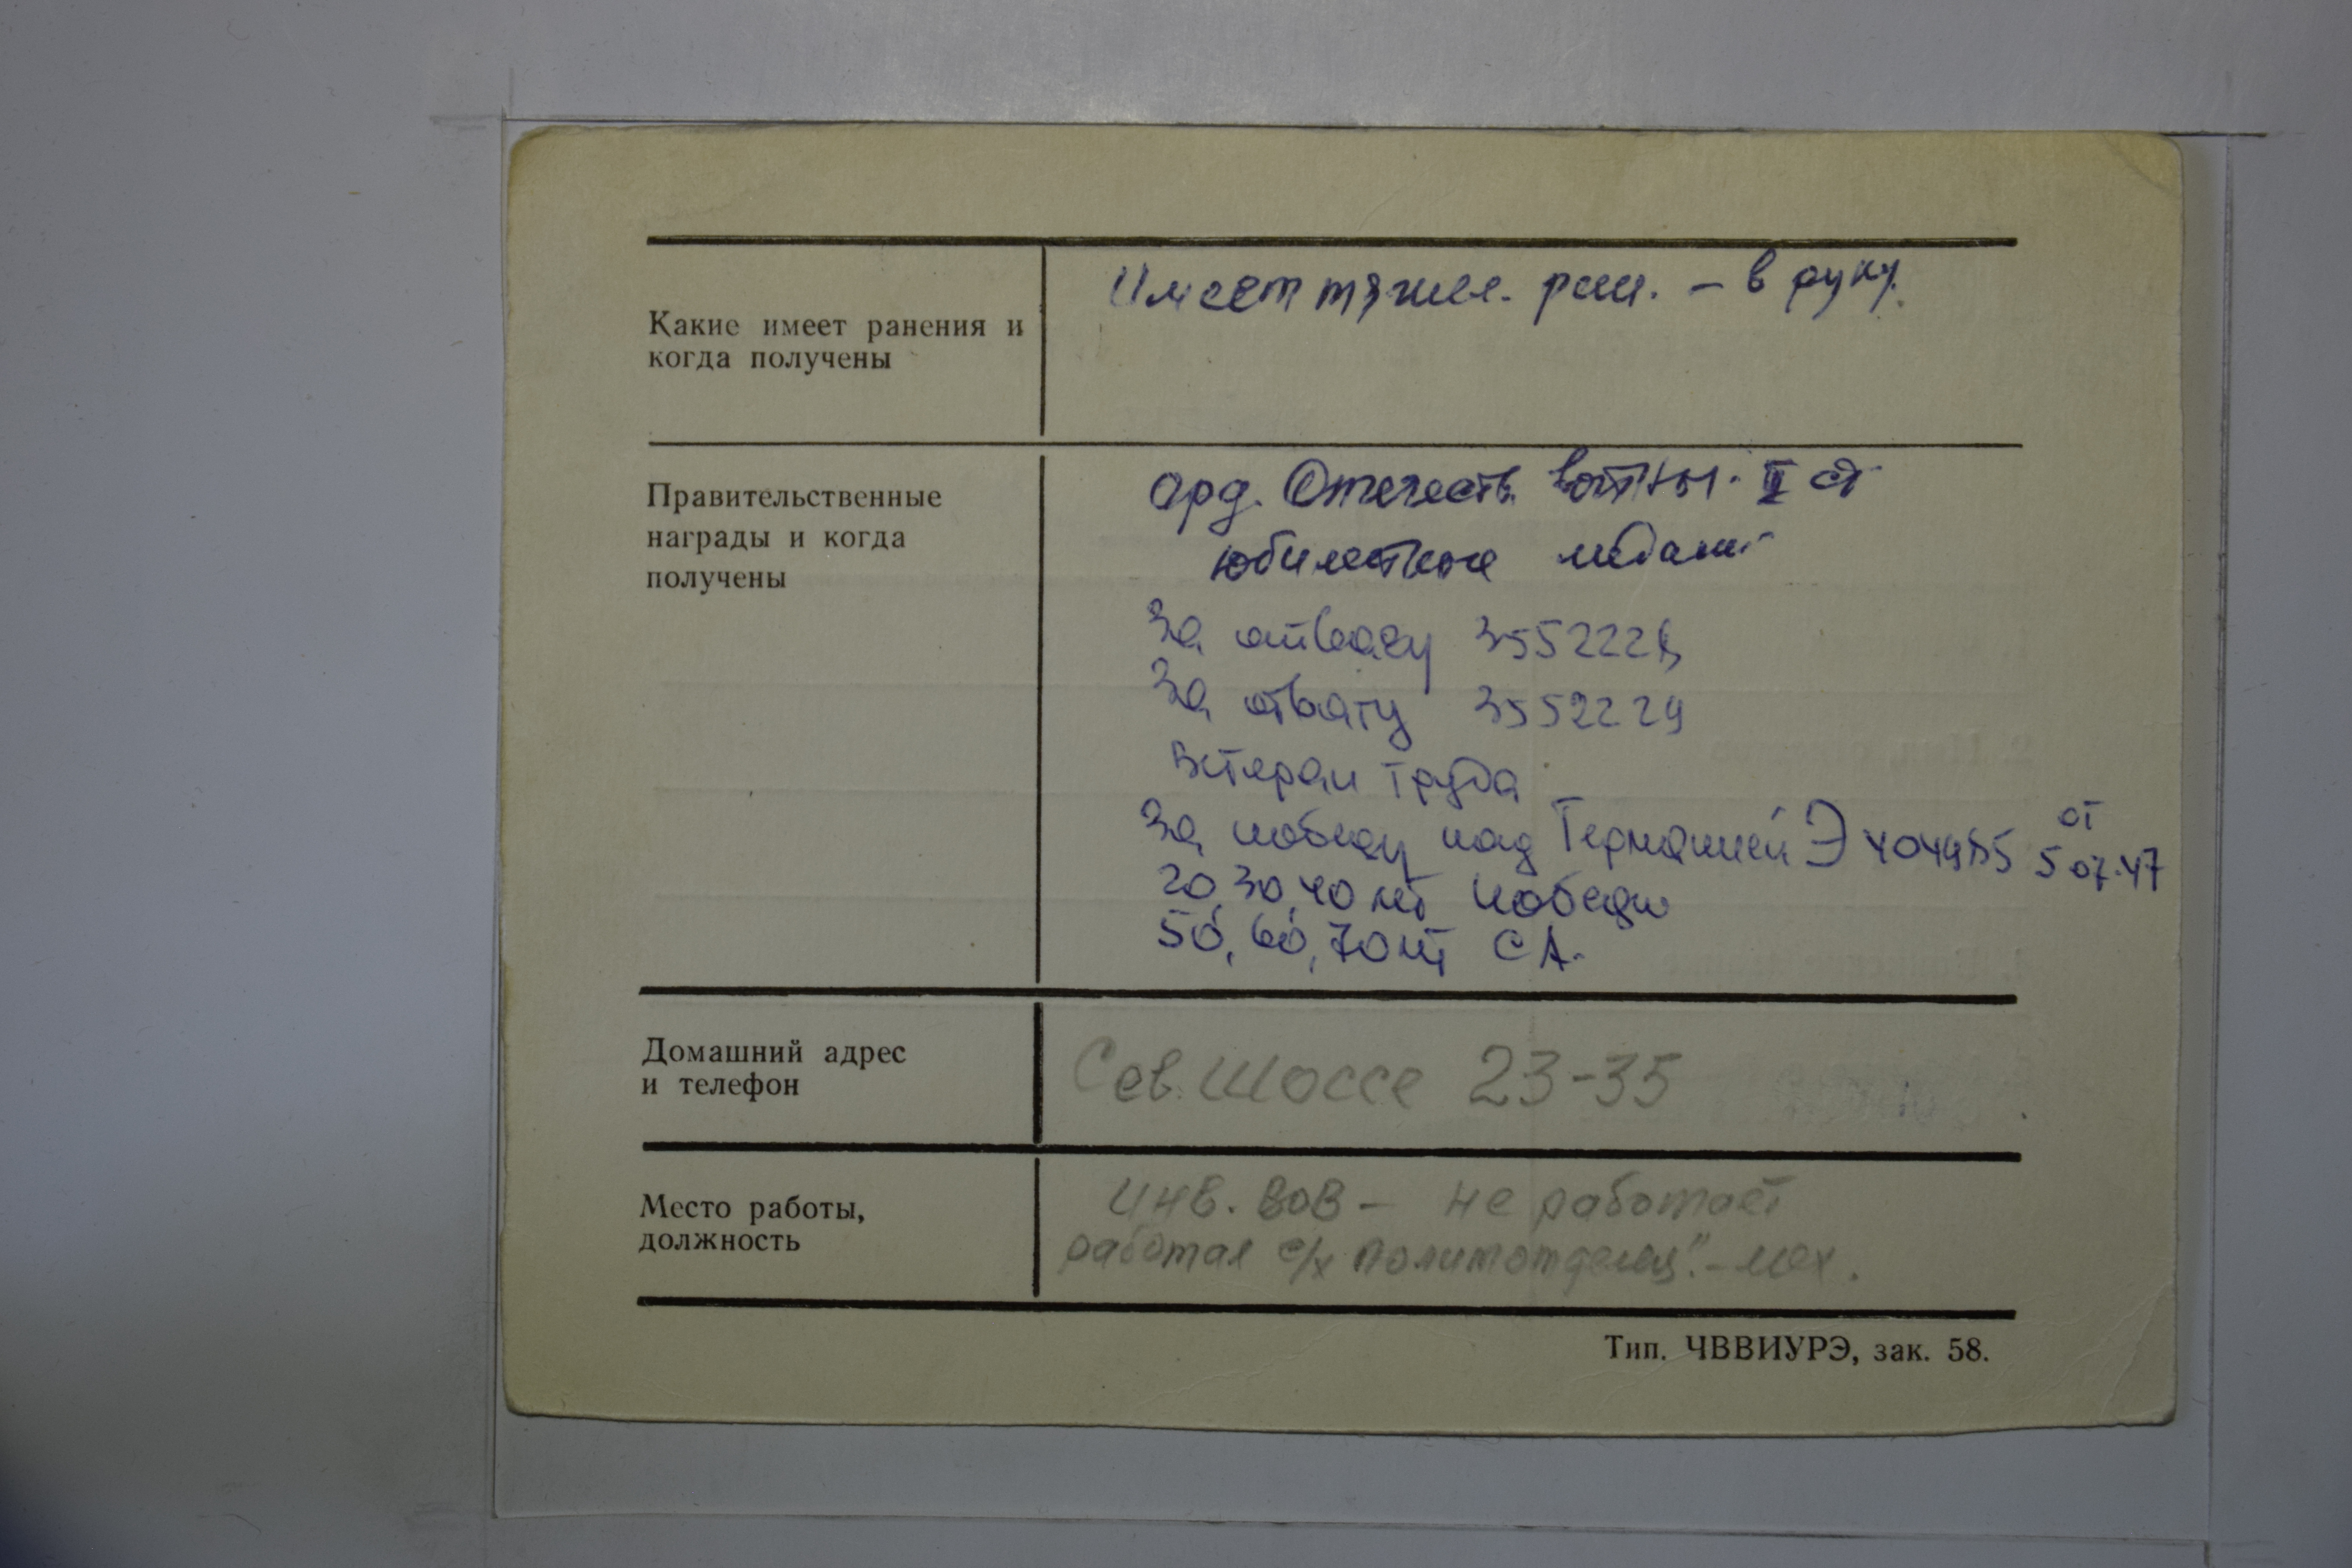 Какие имеет ранения и
когда получены
Имеет тяжел. ран. – в руку.
Правительственные
награды и когда
получены
орд. Отечеств. войны. II ст
юбилейные медали
За отвагу 3552228
За отвагу 3552229
Ветеран труда
За победу над Германией Э 404985 от 5 07.47
20, 30, 40 лет победы
50, 60, 70 лет СА.
Домашний адрес
и телефон
Сев. Шоссе 23-35
Место работы,
должность
Инв. ВОВ – не работает
работал с/х Политотделец" – мех.
Тип. ЧВВИУРЭ, зак. 58.